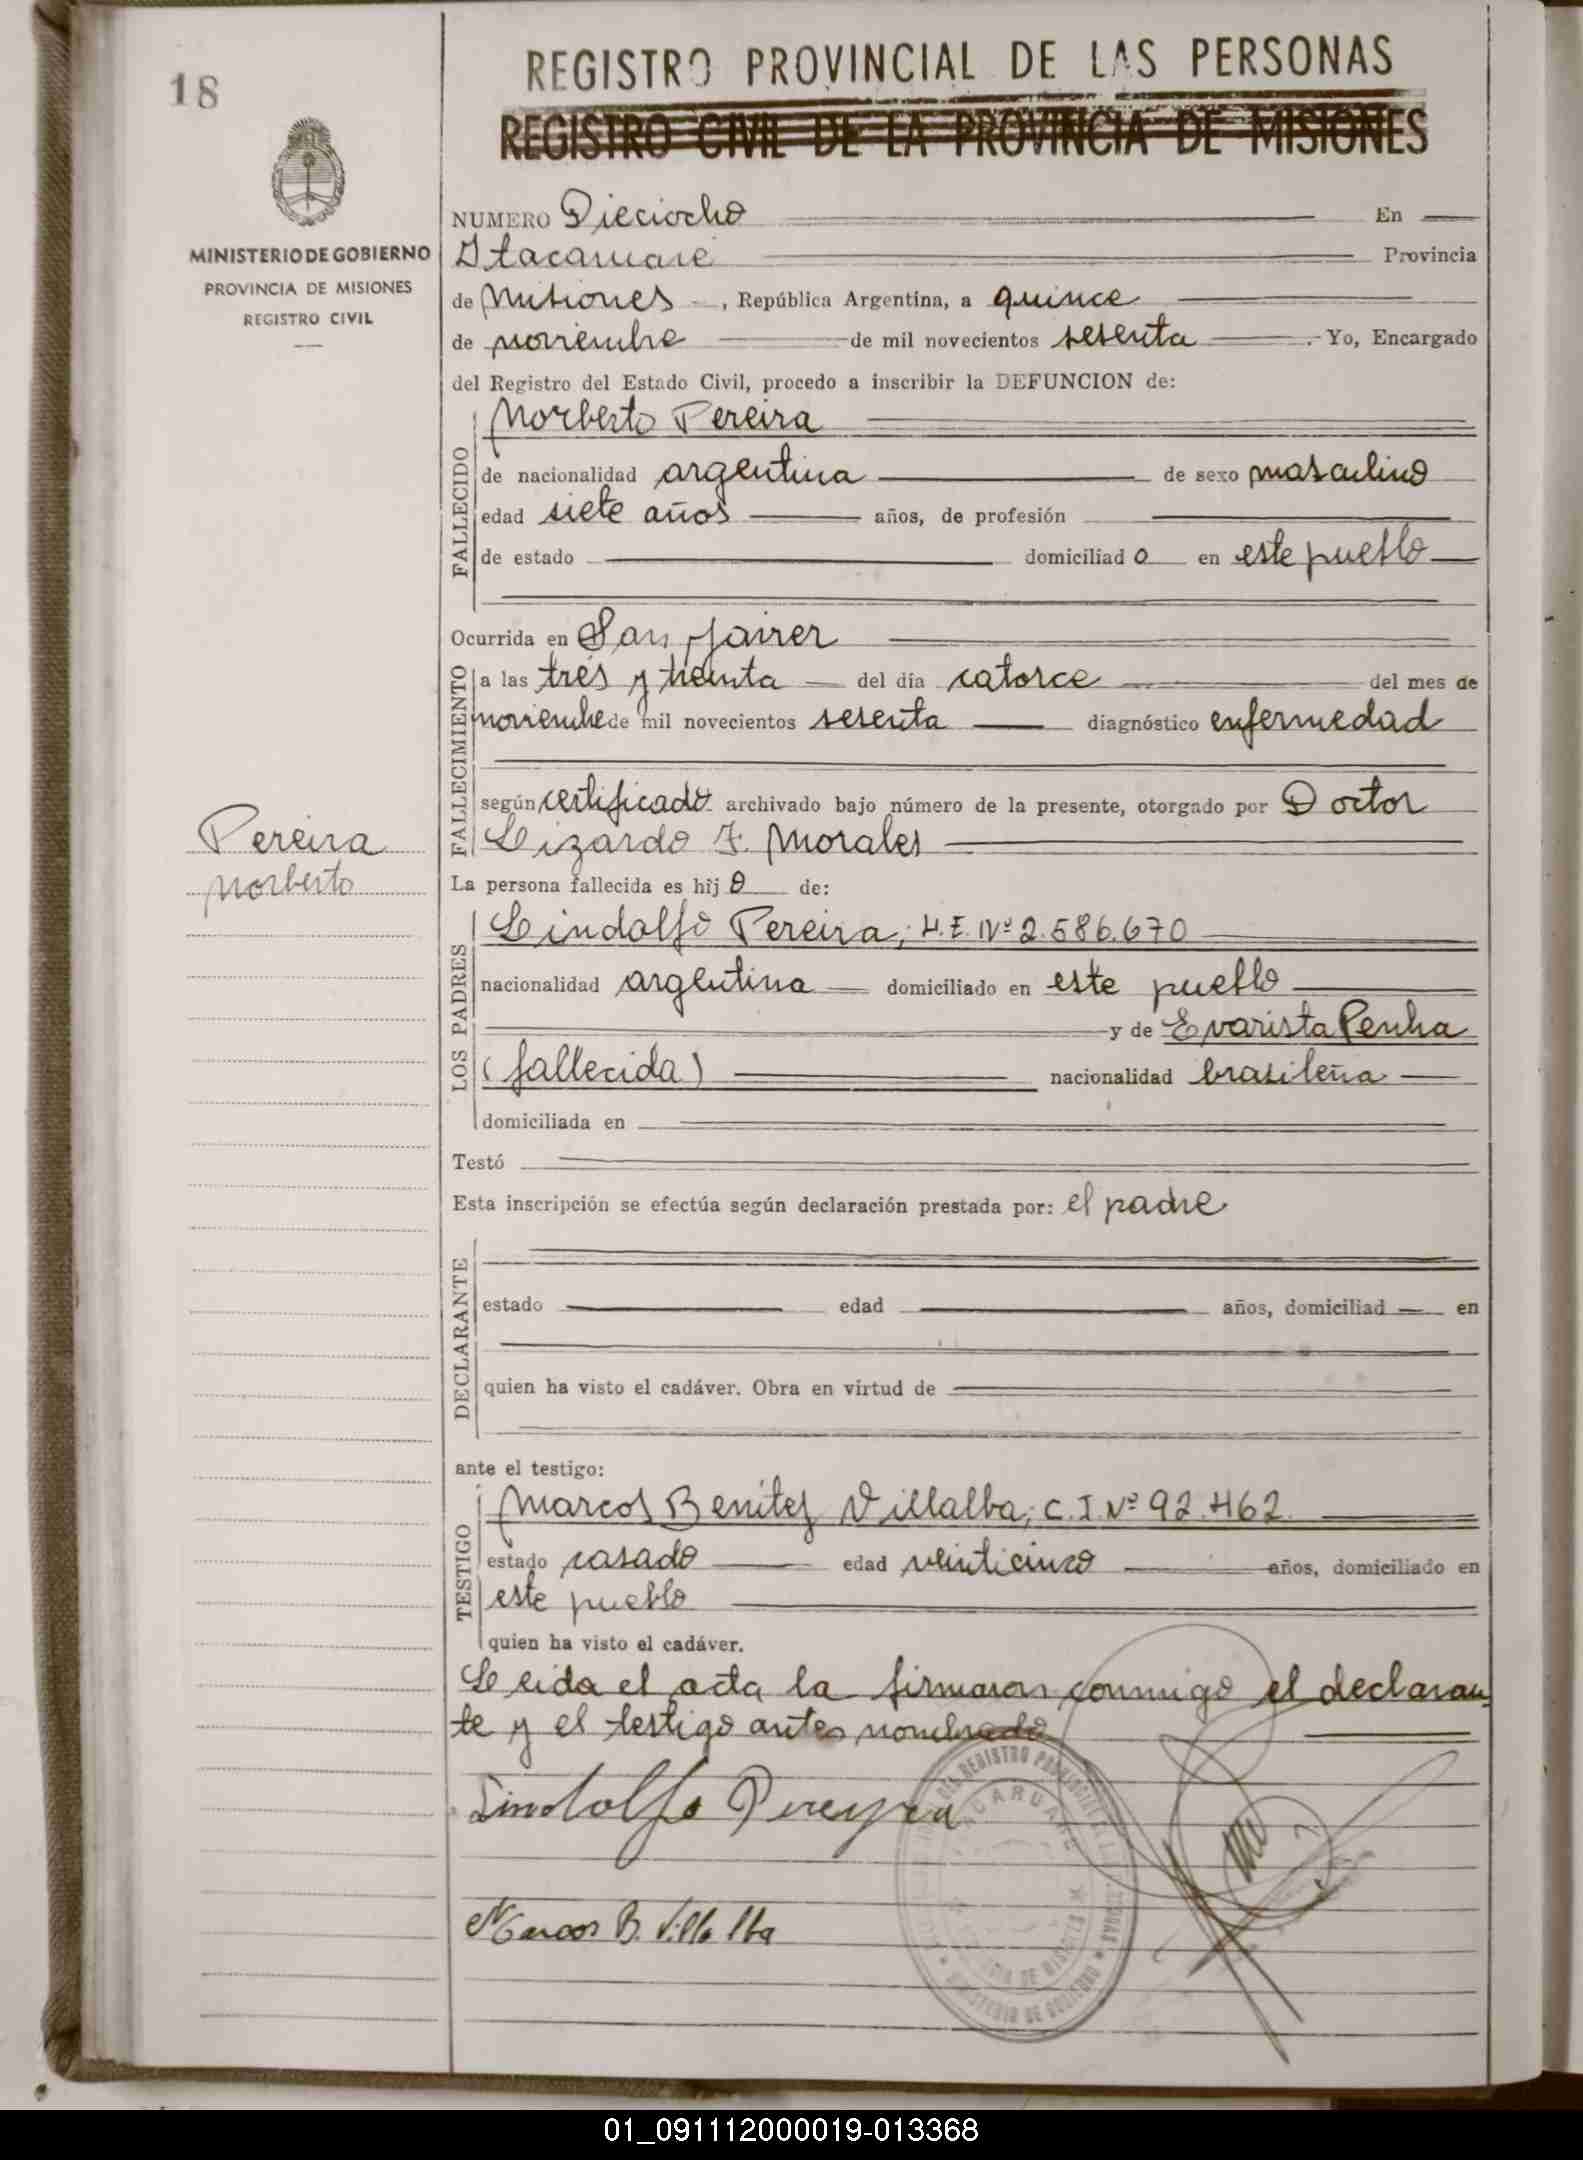 18
MINISTERIO DE GOBIERNO
PROVINCIA DE MISIONES
REGISTRO CIVIL
REGISTRO PROVINCIAL DE LAS PERSONAS
REGISTRO CIVIL DE LA PROVINCIA DE MISIONES
NUMERO Dieciocho En
Itacaruaré Provincia
de Misiones, República Argentina, a quince
de noviembre de mil novecientos sesenta. Yo, Encargado
del Registro del Estado Civil, procedo a inscribir la DEFUNCION de:
FALLECIDO
Norberto Pereira
de nacionalidad argentina de sexo masculino
edad siete años años, de profesión
de estado domiciliado en este pueblo
Ocurrida en San Javier
FALLECIMIENTO
a las tres y treinta del día catorce del mes de
noviembre de mil novecientos sesenta diagnóstico enfermedad
según certificado archivado bajo número de la presente, otorgado por Doctor
Lizardo F. Morales
Pereira
Norberto
La persona fallecida es hijo de:
LOS PADRES
Lindolfo Pereira; M.I. Nº 2.586.670
nacionalidad argentina domiciliado en este pueblo
y de Evarista Penha
(fallecida) nacionalidad brasileña
domiciliada en
Testó
Esta inscripción se efectúa según declaración prestada por: el padre
DECLARANTE
estado edad años, domiciliad en
quien ha visto el cadáver. Obra en virtud de
ante el testigo:
TESTIGO
Marcos Benitez Villalba; C.I. Nº 92.462
estado casado edad veinticinco años, domiciliado en
este pueblo
quien ha visto el cadáver.
Leida el acta la firmaron conmigo el declaran-
te y el testigo antes nombrado
Lindolfo Pereyra
Marcos B. Villalba
ITACARUARE
01_091112000019-013368